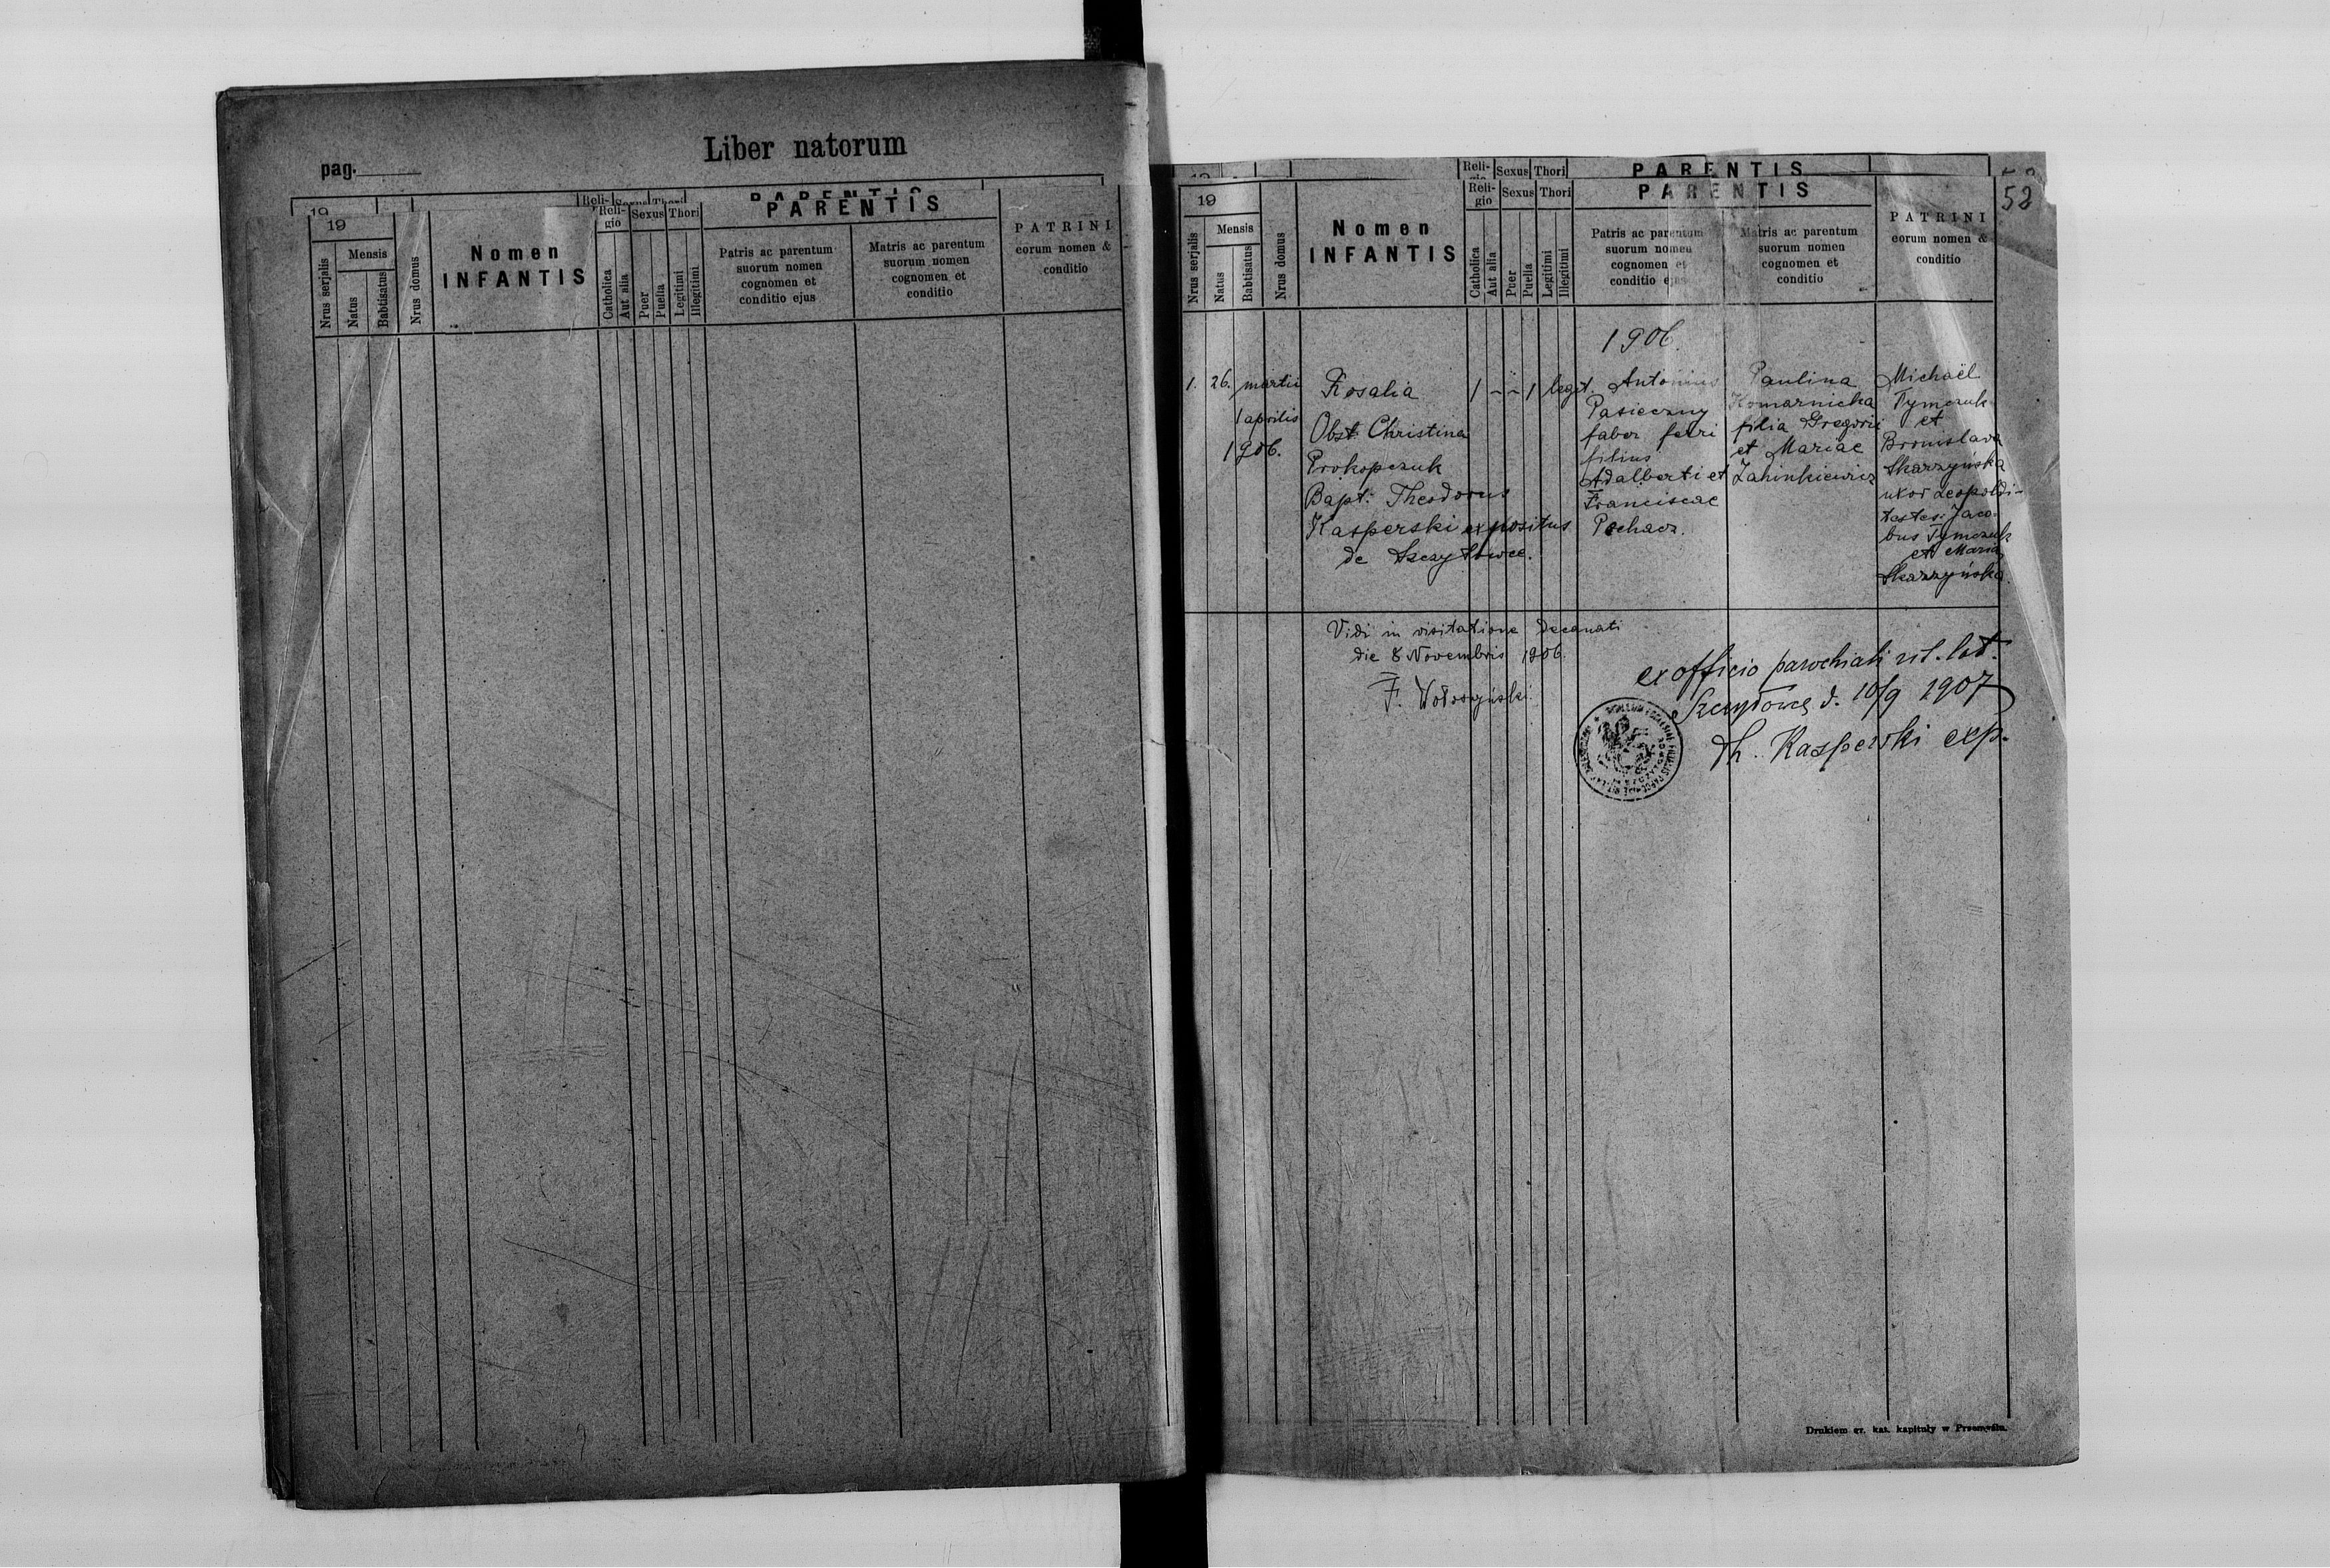 Liber natorum
pag.
PARENTIS
19
Mensis
Nrus serjalis
Natus
Babtisatus
Nrus domus
Nomen
INFANTIS
Reli-
gio
Sexus
Thori
Catholica
Aut alia
Puer
Puella
Legitimi
Illegitimi
PARENTIS
Patris ac parentum
suorum nomen
cognomen et
conditio ejus
Matris ac parentum
suorum nomen
cognomen et
conditio
PATRINI
eorum nomen &
conditio
Reli-
Sexus
Thori
PARENTIS
52
19
Mensis
Nrus serjalis
Natus
Babtisatus
Nrus domus
Nomen
INFANTIS
Reli-
gio
Sexus
Thori
Catholica
Aut alia
Puer
Puella
Legitimi
Illegitimi
PARENTIS
Patris ac parentum
suorum nomen
cognomen et
conditio ejus
Matris ac parentum
suorum nomen
cognomen et
conditio
PATRINI
eorum nomen &
conditio
1906.
1. 26. martii
1 aprilis
1906.
Rosalia
Obst. Christina
Prokopczuk
Bapt. Theodorus
Kasperski expositus
de Szczytowce.
1 - - 1 legit.
Antonius
Pasieczny
faber ferri
filius
Adalberti et
Franciscae
Pechacz.
Paulina
Komarnicka
filia Gregorii
et Mariae
Michaël
Tymczuk
et
Bronislava
Skarzyńska
uxor Leopoldi -
testes: Jaco-
bus Tymczuk
et Maria
Skarzyńska.
Vidi in visitatione Decanali
die 8 Novembris 1906.
F. Wołoszyński
ex officio parochiali rit. lat.
Szczytowce d. 10/9 1907
Th. Kasperski exp.
Drukiem gr. kat. kapituły w Przemyślu.